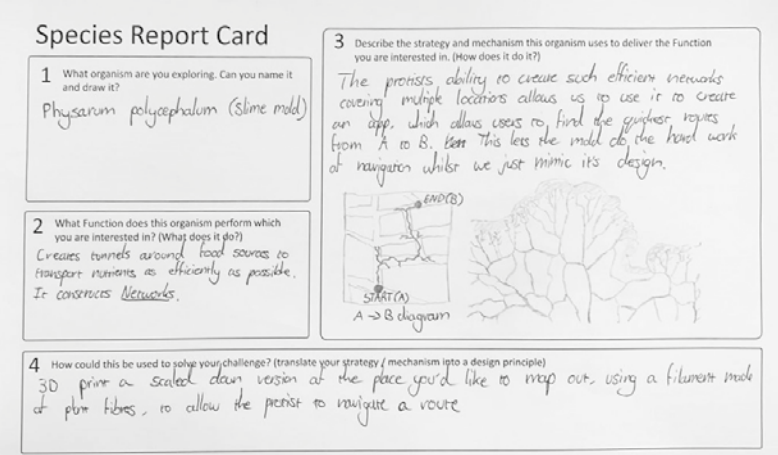 Species Report Card
1 What organism are you exploring. Can you name it
and draw it?
Physarum polycephalum (Slime mold)
2 What Function does this organism perform which
you are interested in? (What does it do?)
Creates tunnels around food sources to
transport nutrients as efficiently as possible.
It constructs Networks.
3 Describe the strategy and mechanism this organism uses to deliver the Function
you are interested in. (How does it do it?)
The protists ability to create such efficient networks
covering multiple locations allows us to use it to create
an app, which allows users to find the quickest routes
from A to B. This lets the mold do the hard work
of navigation whilst we just mimic it's design.
END(B)
START(A)
A → B diagram
4 How could this be used to solve your challenge? (translate your strategy / mechanism into a design principle)
3D print a scaled down version of the place you'd like to map out, using a filament made
of fibres, to allow the protist to navigate a route